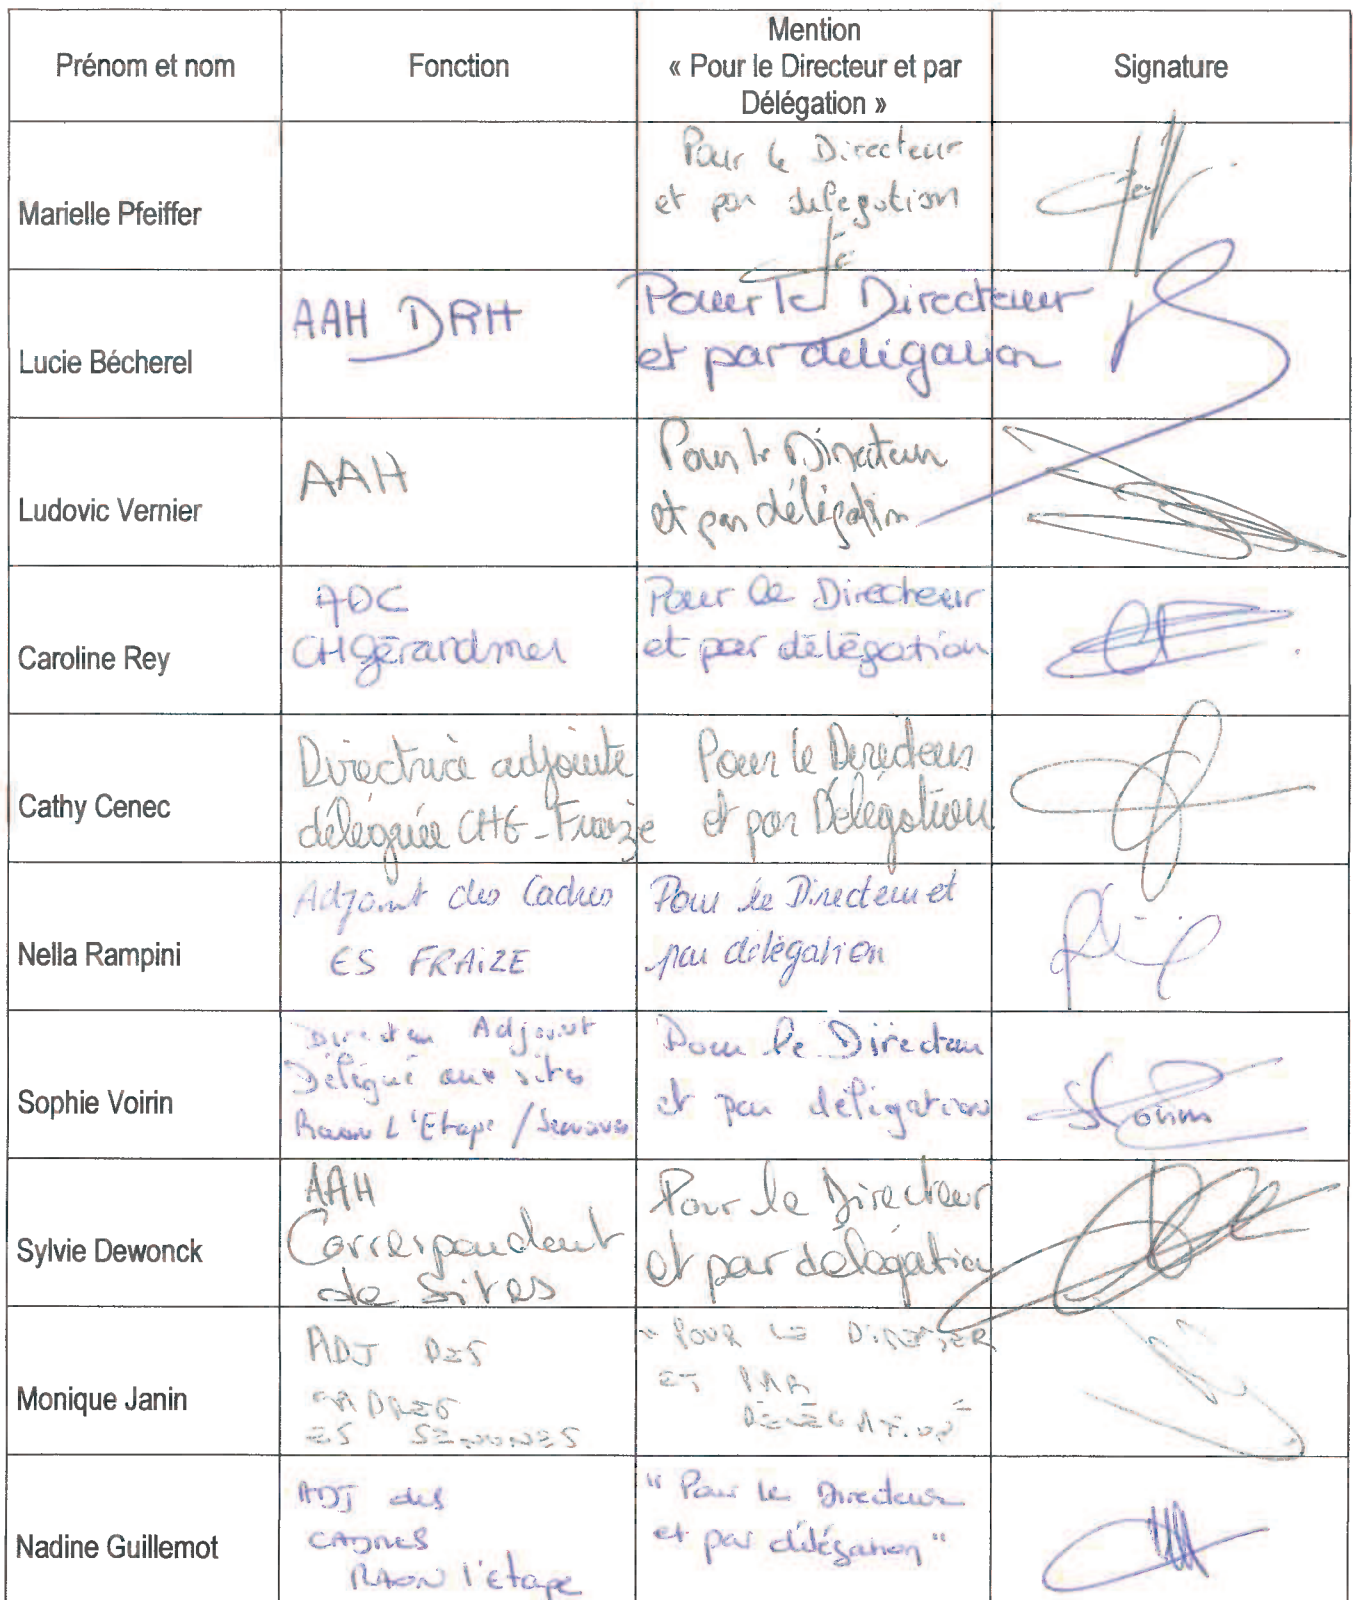 Prénom et nom
Fonction
Mention
« Pour le Directeur et par
Délégation »
Signature
Marielle Pfeiffer
Pour le Directeur
et par délégation
Lucie Bécherel
AAH DRH
Pour le Directeur
et par délégation
Ludovic Vernier
AAH
Pour le Directeur
et par délégation
Caroline Rey
ADC
CH Gérardmer
Pour le Directeur
et par délégation
Cathy Cenec
Directrice adjointe
déléguée CHG-Fraize
Pour le Directeur
et par Délégation
Nella Rampini
Adjoint des Cadres
ES FRAIZE
Pour le Directeur et
par délégation
Sophie Voirin
Directeur Adjoint
Délégué aux sites
Raon L'Etape / Senones
Pour le Directeur
et par délégation
Sylvie Dewonck
AAH
Correspondant
de Sites
Pour le Directeur
et par délégation
Monique Janin
ADJ DES
CADRES
ES SENONES
"POUR LE DIRECTEUR
ET PAR
DELEGATION"
Nadine Guillemot
ADJ des
CADRES
RAON l'étape
"Pour le Directeur
et par délégation"